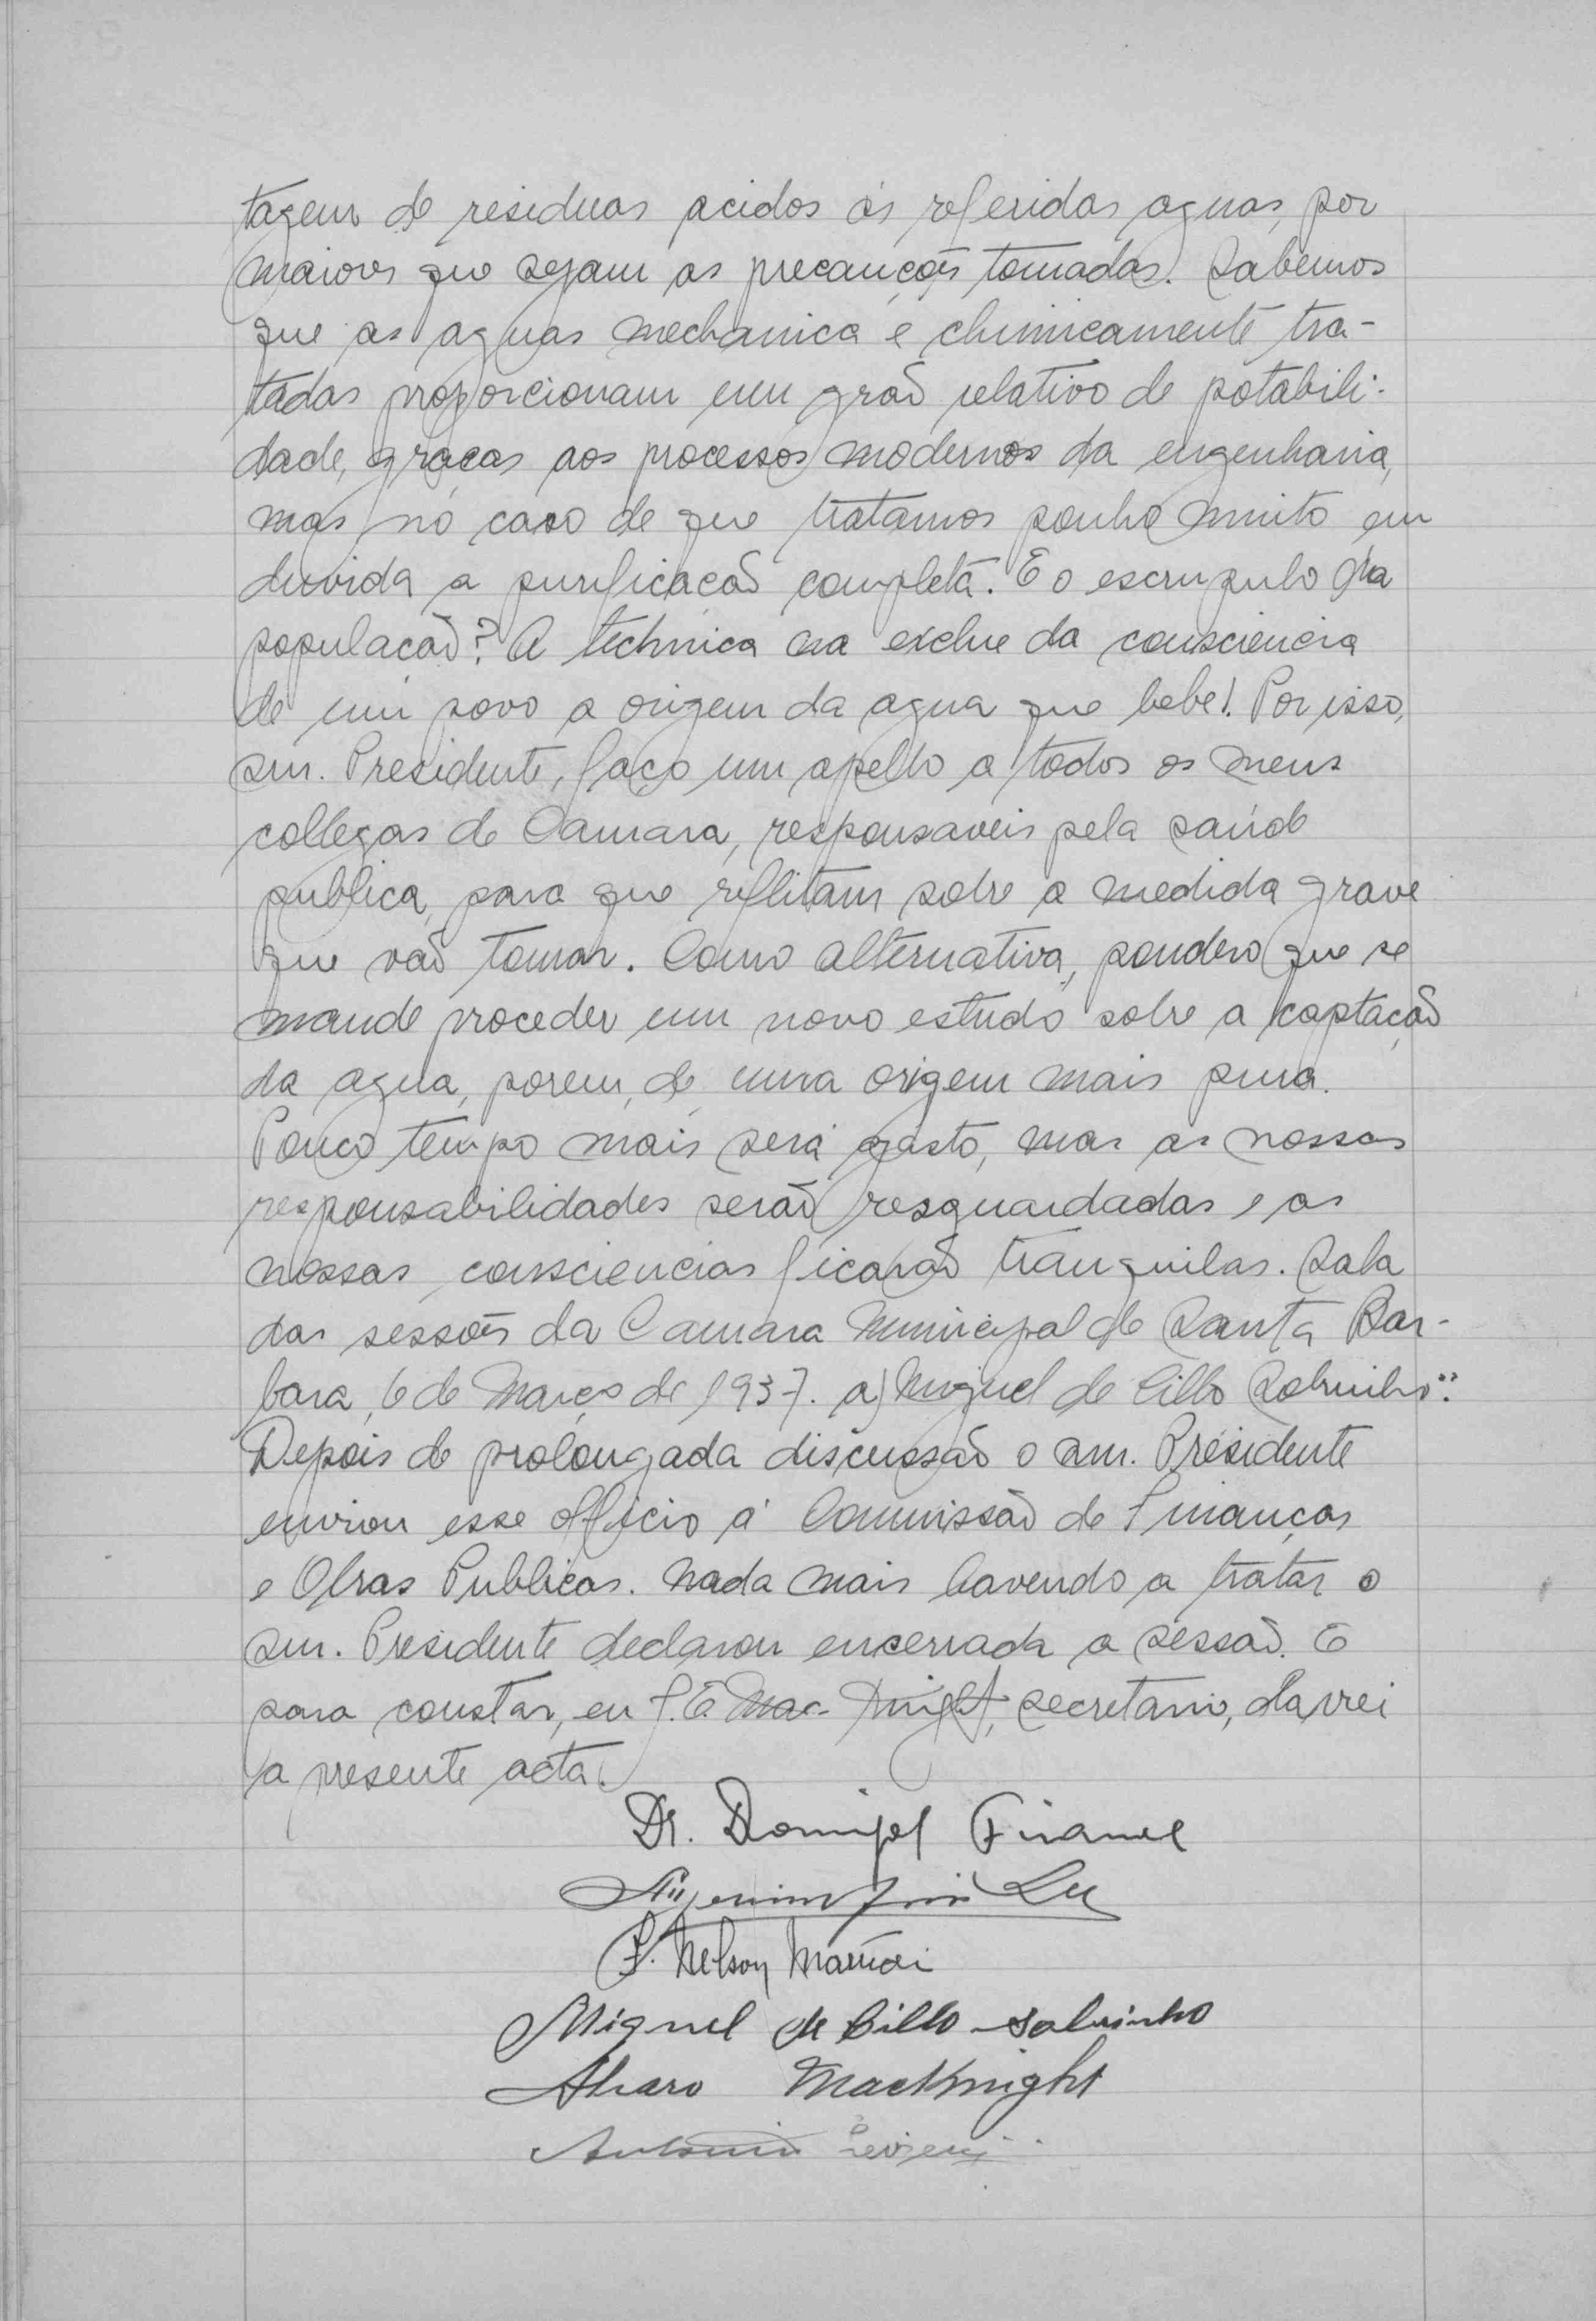 tagem de residuos acidos ás referidas aguas, por
maiores que sejam as precauções tomadas. Sabemos
que as aguas mechanica e chimicamente tra-
tadas proporcionam um gráo relativo de potabili-
dade, graças aos processos modernos da engenharia,
mas no caso de que tratamos ponho muito em
duvida a purificação completa. E o escrupulo da
população? A technica não exclue da consciencia
de um povo a origem da agua que bebe! Por isso,
snr. Presidente, faço um apello a todos os meus
collegas de Camara, responsaveis pela saúde
publica, para que reflitam sobre a medida grave
que vão tomar. Como alternativa, pondero que se
mande proceder um novo estudo sobre a captação
da agua, porem, de uma origem mais pura.
Pouco tempo mais será gasto, mas as nossas
responsabilidades serão resguardadas e as
nossas consciencias ficarão tranquilas. Sala
das sessões da Camara Municipal de Santa Bar-
bara, 6 de Março de 1937. a) Miguel de Cillo Sobrinho".
Depois de prolongada discussão o snr. Presidente
enviou esse officio á Commissão de Finanças
e Obras Publicas. Nada mais havendo a tratar o
snr. Presidente declarou encerrada a sessão. E
para constar, eu J. E. Mac-Knight, secretario, lavrei
a presente acta.
Dr. Domingos Finamel
Lee
P. Nelson
Miguel de Cillo Sobrinho
Alvaro MacKnight
Antonio